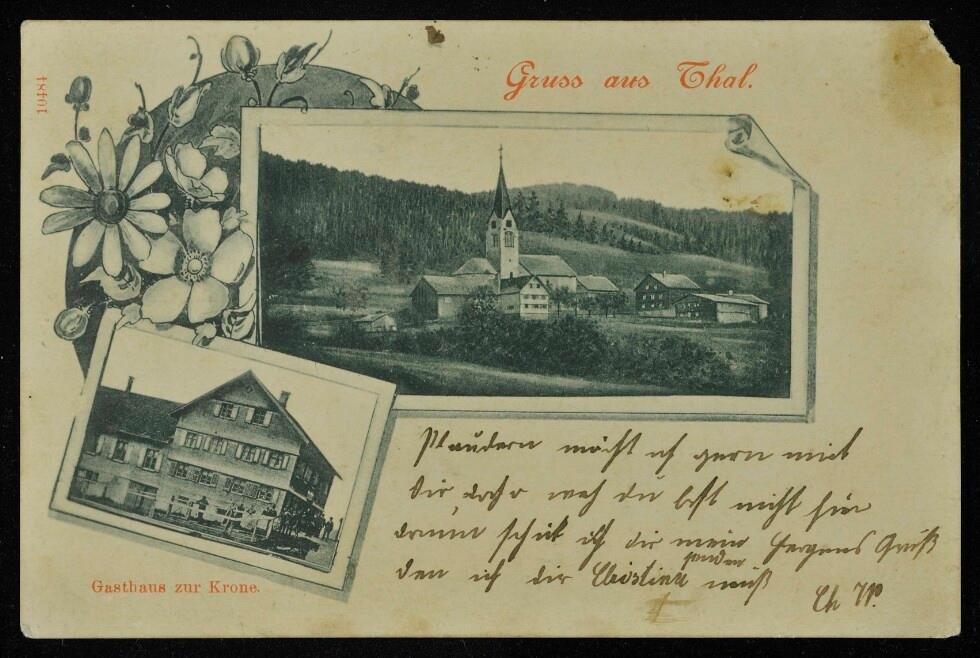 10484
Gruss aus Thal.
Plaudern möcht ich gern mit
dir doch weh du bist nicht hier
drum schick ich dir mein Herzens Gruß
senden
den ich dir Christina muß
Ch W.
Gasthaus zur Krone.